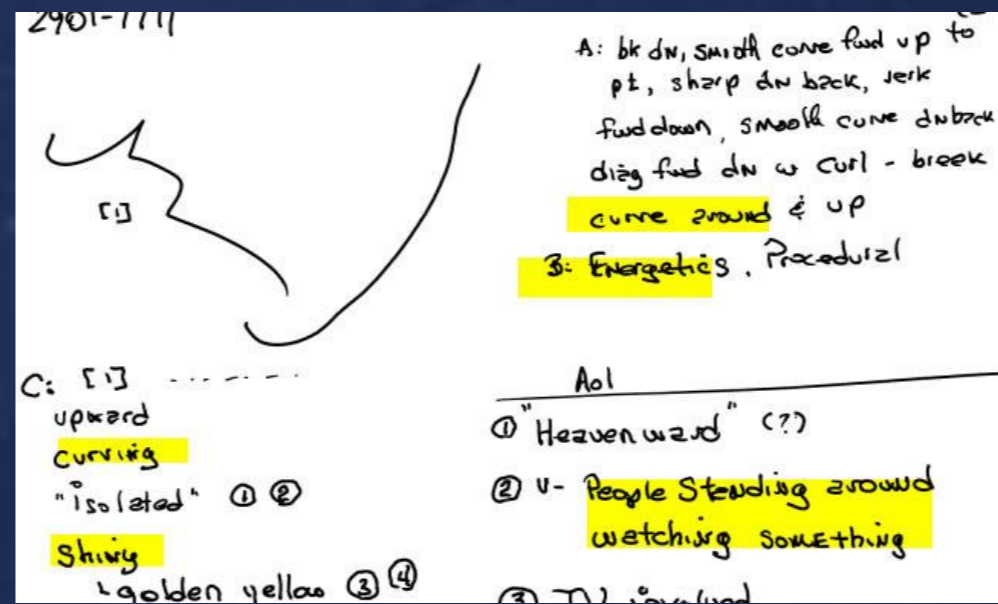 A: bk dN, smooth curve fwd up to
pt, sharp dN back, jerk
fwd down, smooth curve dNback
diag fwd dN w curl - break
curve around & up
B: Energetics. Procedural
[1]
C: [1]
upward
curving
"isolated" ① ②
Shiny
golden yellow ③ ④
Aol
① "Heavenward" (?)
② V- People Standing around
watching something
③ TV involved